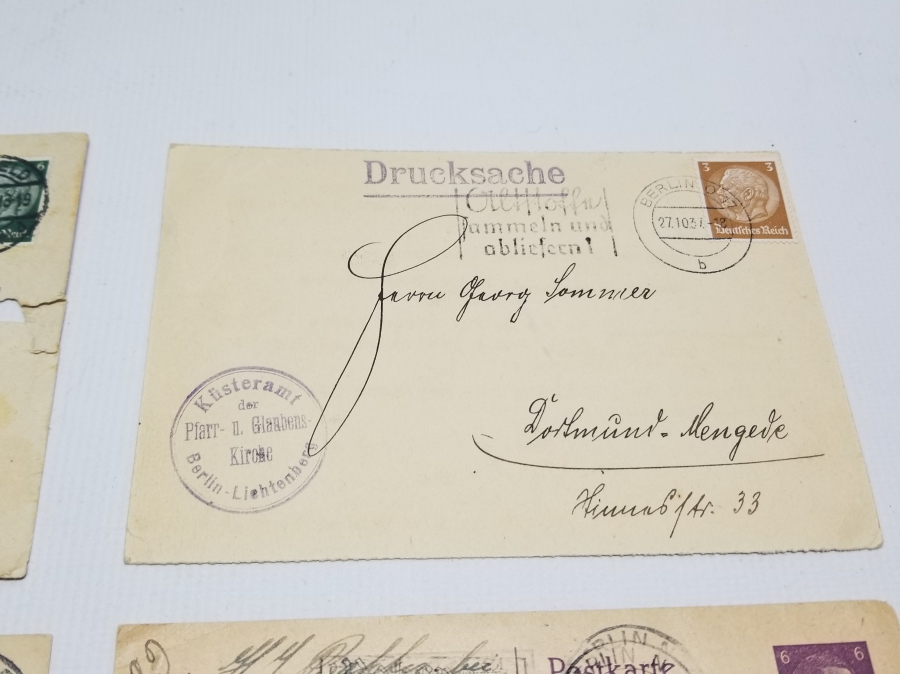 Drucksache
Altstoffe
sammeln und
abliefern!
BERLIN O
27.10.37.-18
b
3 3
Deutsches Reich
Herrn Georg Sommer
Dortmund-Mengede
Hinnesstr. 33
Küsteramt
der
Pfarr- u. Glaubens-
Kirche
Berlin-Lichtenberg
Postkarte
BERLIN N
6 6